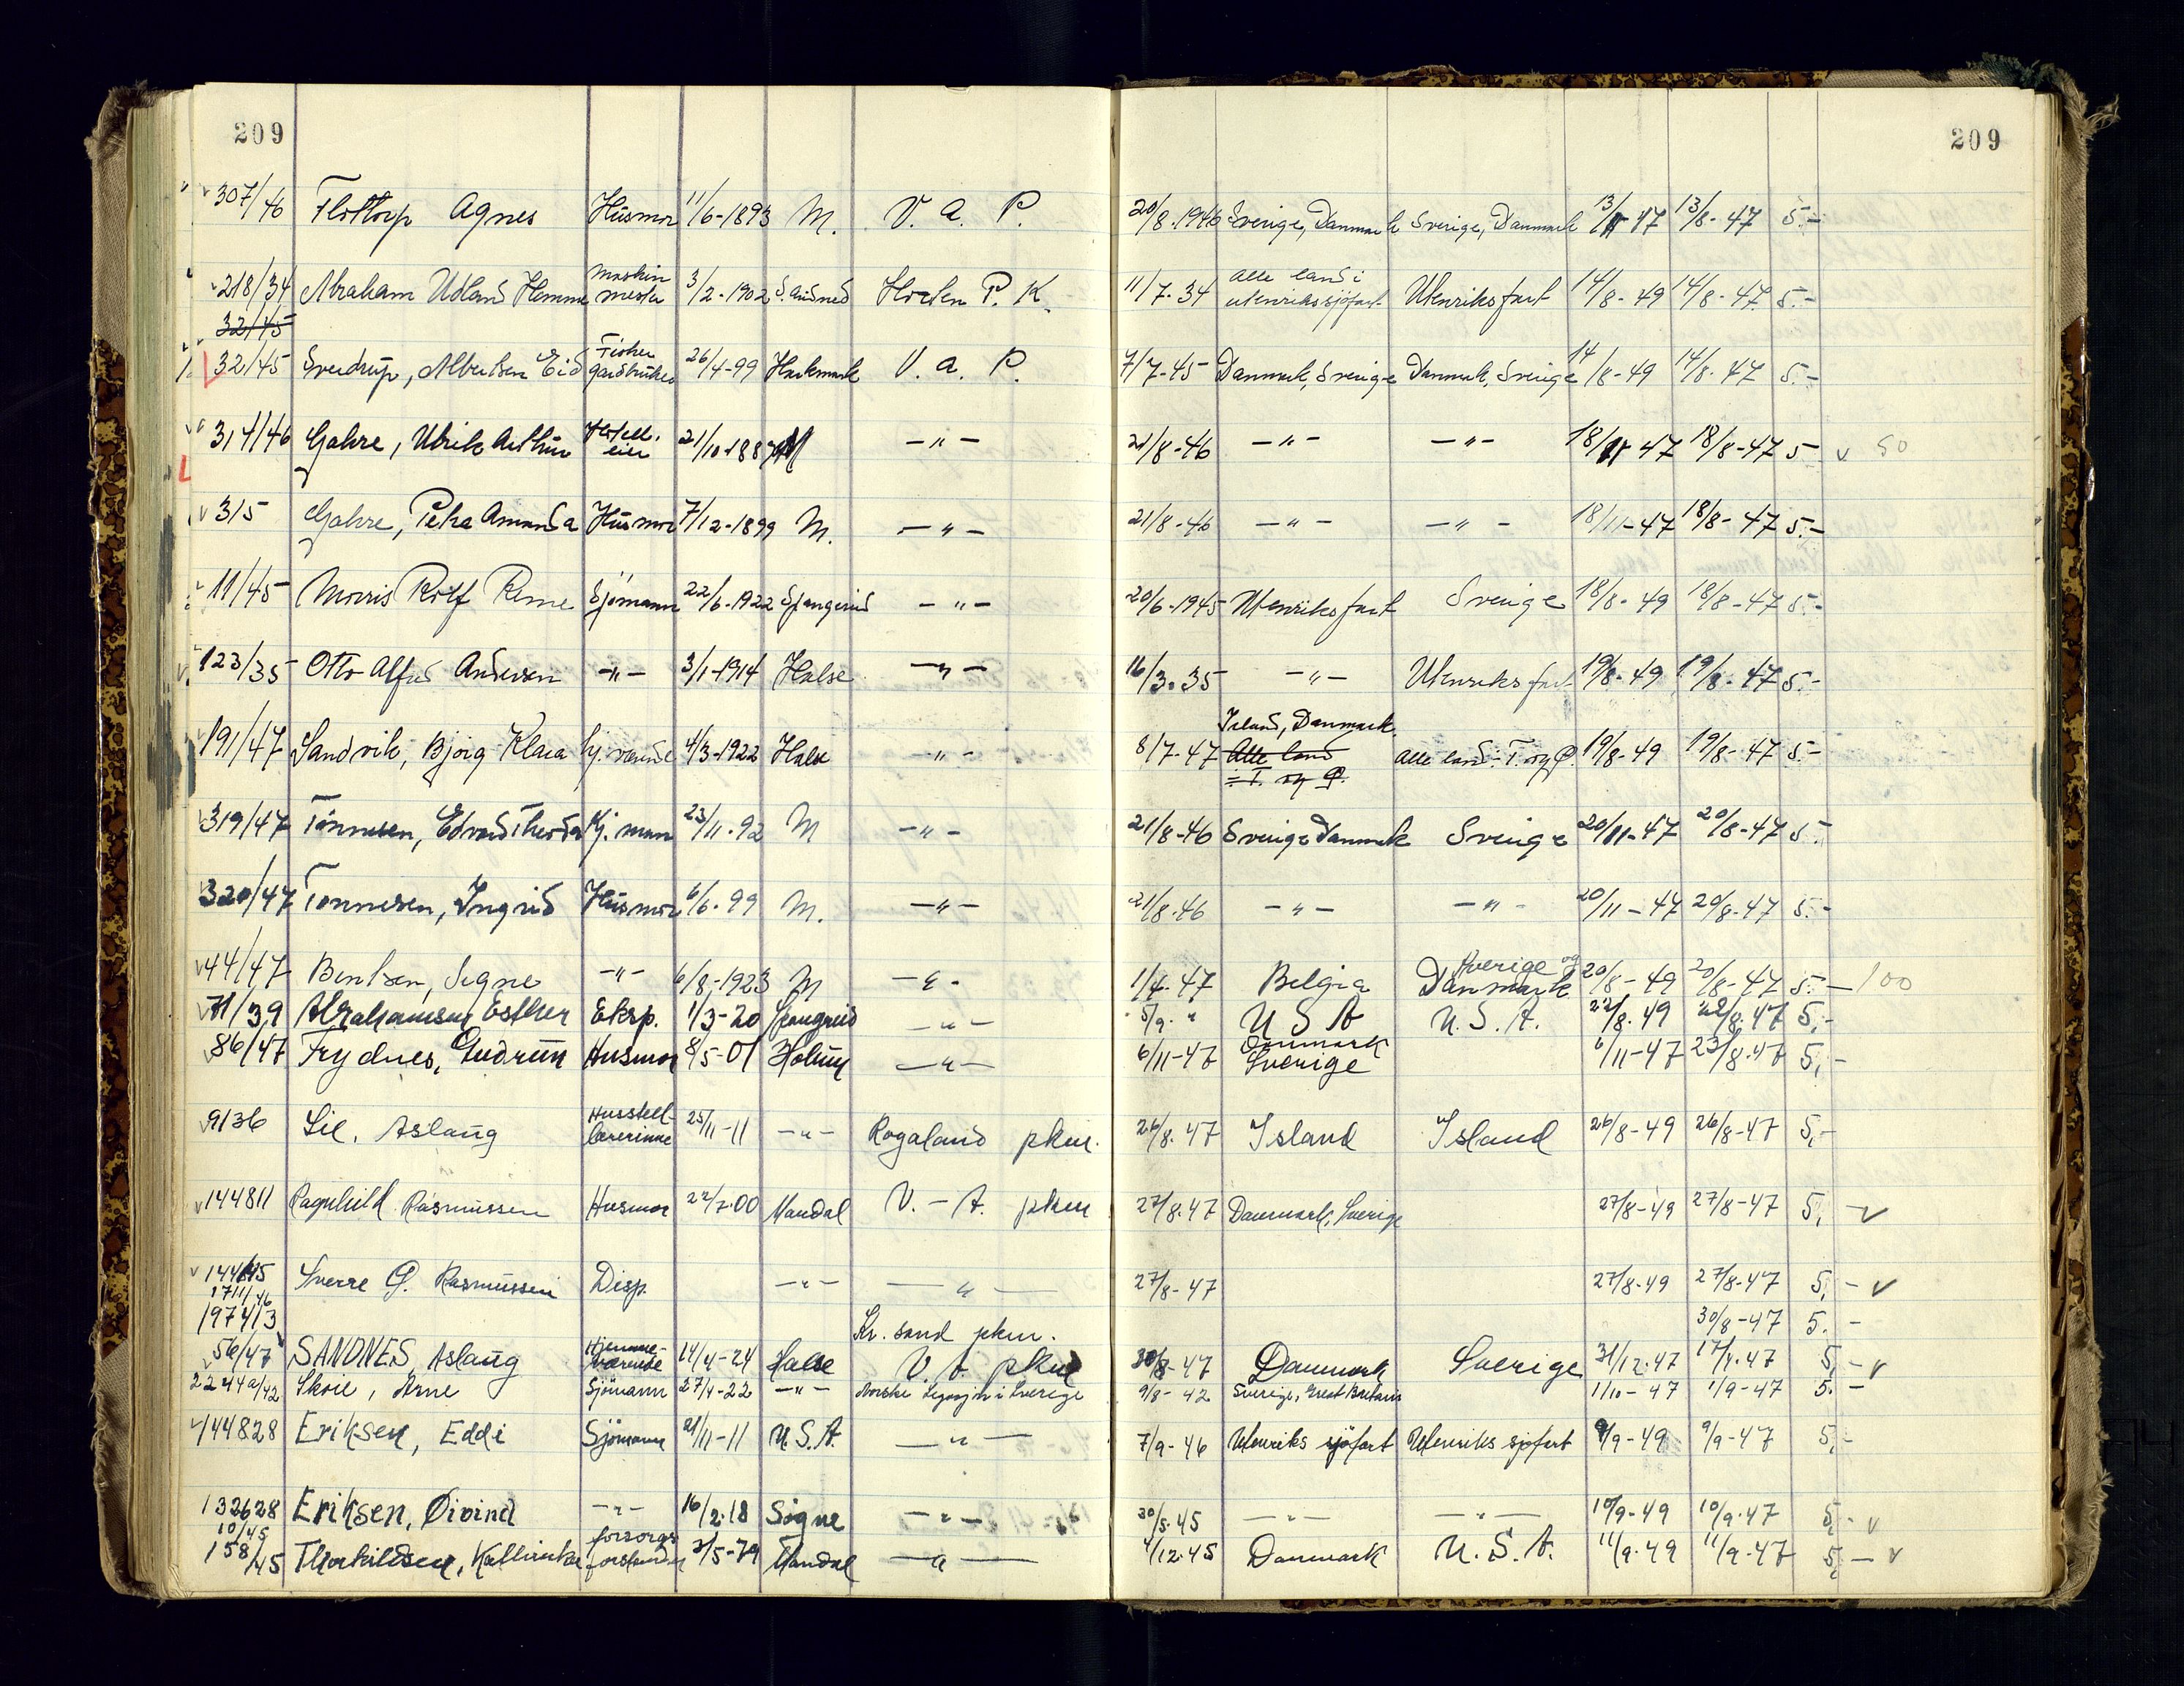 209
209
307/46 Flottorp Agnes Husmor 11/6-1893 M. V. A. P. 20/8-1946 Sverige, Danmark Sverige, Danmark 13/11-47 13/8-47 5.-
218/34 Abraham Udland Hemme Maskin mester 3/2-1902 S. Audned Horten P. K. 11/7-34 Alle land i utenrikssjøfart Utenriksfart 14/8-49 14/8-47 5.-
32/45
32/45 Sverdrup, Albertsen Eid Fisker gardbruker 26/4-99 Harkmark V. A. P. 7/7-45 Danmark, Sverige Danmark, Sverige 14/8-49 14/8-47 5.-
314/46 Gahre, Ulrik Arthur Hotell. eier 21/10-1887 M -"- 21/8-46 -"- -"- 18/11-47 18/8-47 5 v 50
315 Gahre, Petra Amanda Husmor 7/12-1899 M. -"- 21/8-46 -"- -"- 18/11-47 18/8-47 5.-
11/45 Morris Rolf Reme Sjømann 22/6-1922 Spangereid -"- 20/6-1945 Utenriksfart Sverige 18/8-49 18/8-47 5.-
123/35 Otto Alfred Andersen -"- 3/1-1914 Halse -"- 16/3-35 -"- Utenriksfart 19/8-49 19/8-47 5.-
191/47 Sandvik, Bjørg Klara hj. værende 4/3-1922 Halse -"- 8/7-47 Island, Danmark Alle land ÷ T. og P. Alle land ÷ T. og P. 19/8-49 19/8-47 5.-
319/47 Tønnesen, Edvard Theodor Hj. mann 23/11-92 M -"- 21/8-46 Sverige Danmark Sverige 20/11-47 20/8-47 5.-
320/47 Tønnesen, Ingrid Husmor 6/6-99 M. -"- 21/8-46 -"- -"- 20/11-47 20/8-47 5.-
44/47 Bentsen, Signe -"- 6/8-1923 M -"- 1/4-47 Belgia Sverige og Danmark 20/8-49 20/8-47 5.- 100
71/39 Abrahamsen Esther Eksp. 1/3-20 Spangreid -"- 5/9-" U S A U. S. A. 22/8-49 22/8-47 5,-
86/47 Frydnes, Gudrun Husmor 8/5-01 Holum -"- 6/11-47 Danmark Sverige 6/11-47 23/8-47 5,-
9/36 Lie, Aslaug Husstell- lærerinne 25/11-11 -"- Rogaland pkm. 26/8-47 Island Island 26/8-49 26/8-47 5,-
144811 Ragnhild Rasmussen Husmor 22/7-00 Mandal V.-A. pkm 27/8-47 Danmark, Sverige 27/8-49 27/8-47 5,- v
1711/46 Sverre G. Rasmussen Disp. -"- -"- 27/8-47 27/8-49 27/8-47 5,- v
197413 Kr. sand pkm. 30/8-47 5.-
56/47 SANDNES, Aslaug Hjemme- værende 14/4-24 Halse V. A. pkm 30/8-47 Danmark Sverige 31/12-47 17/4-47 5,- v
2244a/42 Skoie, Arne Sjömann 27/4-22 -"- Norske Legasjon i Sverige 9/8-42 Sverige, Great Britain 1/10-47 1/9-47 5.-
144828 Eriksen, Eddi Sjömann 21/11-11 U.S.A. -"- 7/9-46 Utenriks sjöfart Utenriks sjöfart 9/9-49 9/9-47 5,-
132628 Eriksen, Øivind -"- 16/2-18 Søgne -"- 30/5-45 -"- -"- 10/9-49 10/9-47 5,- v
10/45
158/45 Thorkildsen, Kathinka forsorgs forstander 3/5-79 Mandal -"- 4/12-45 Danmark U. S. A. 11/9-49 11/9-47 5,- v